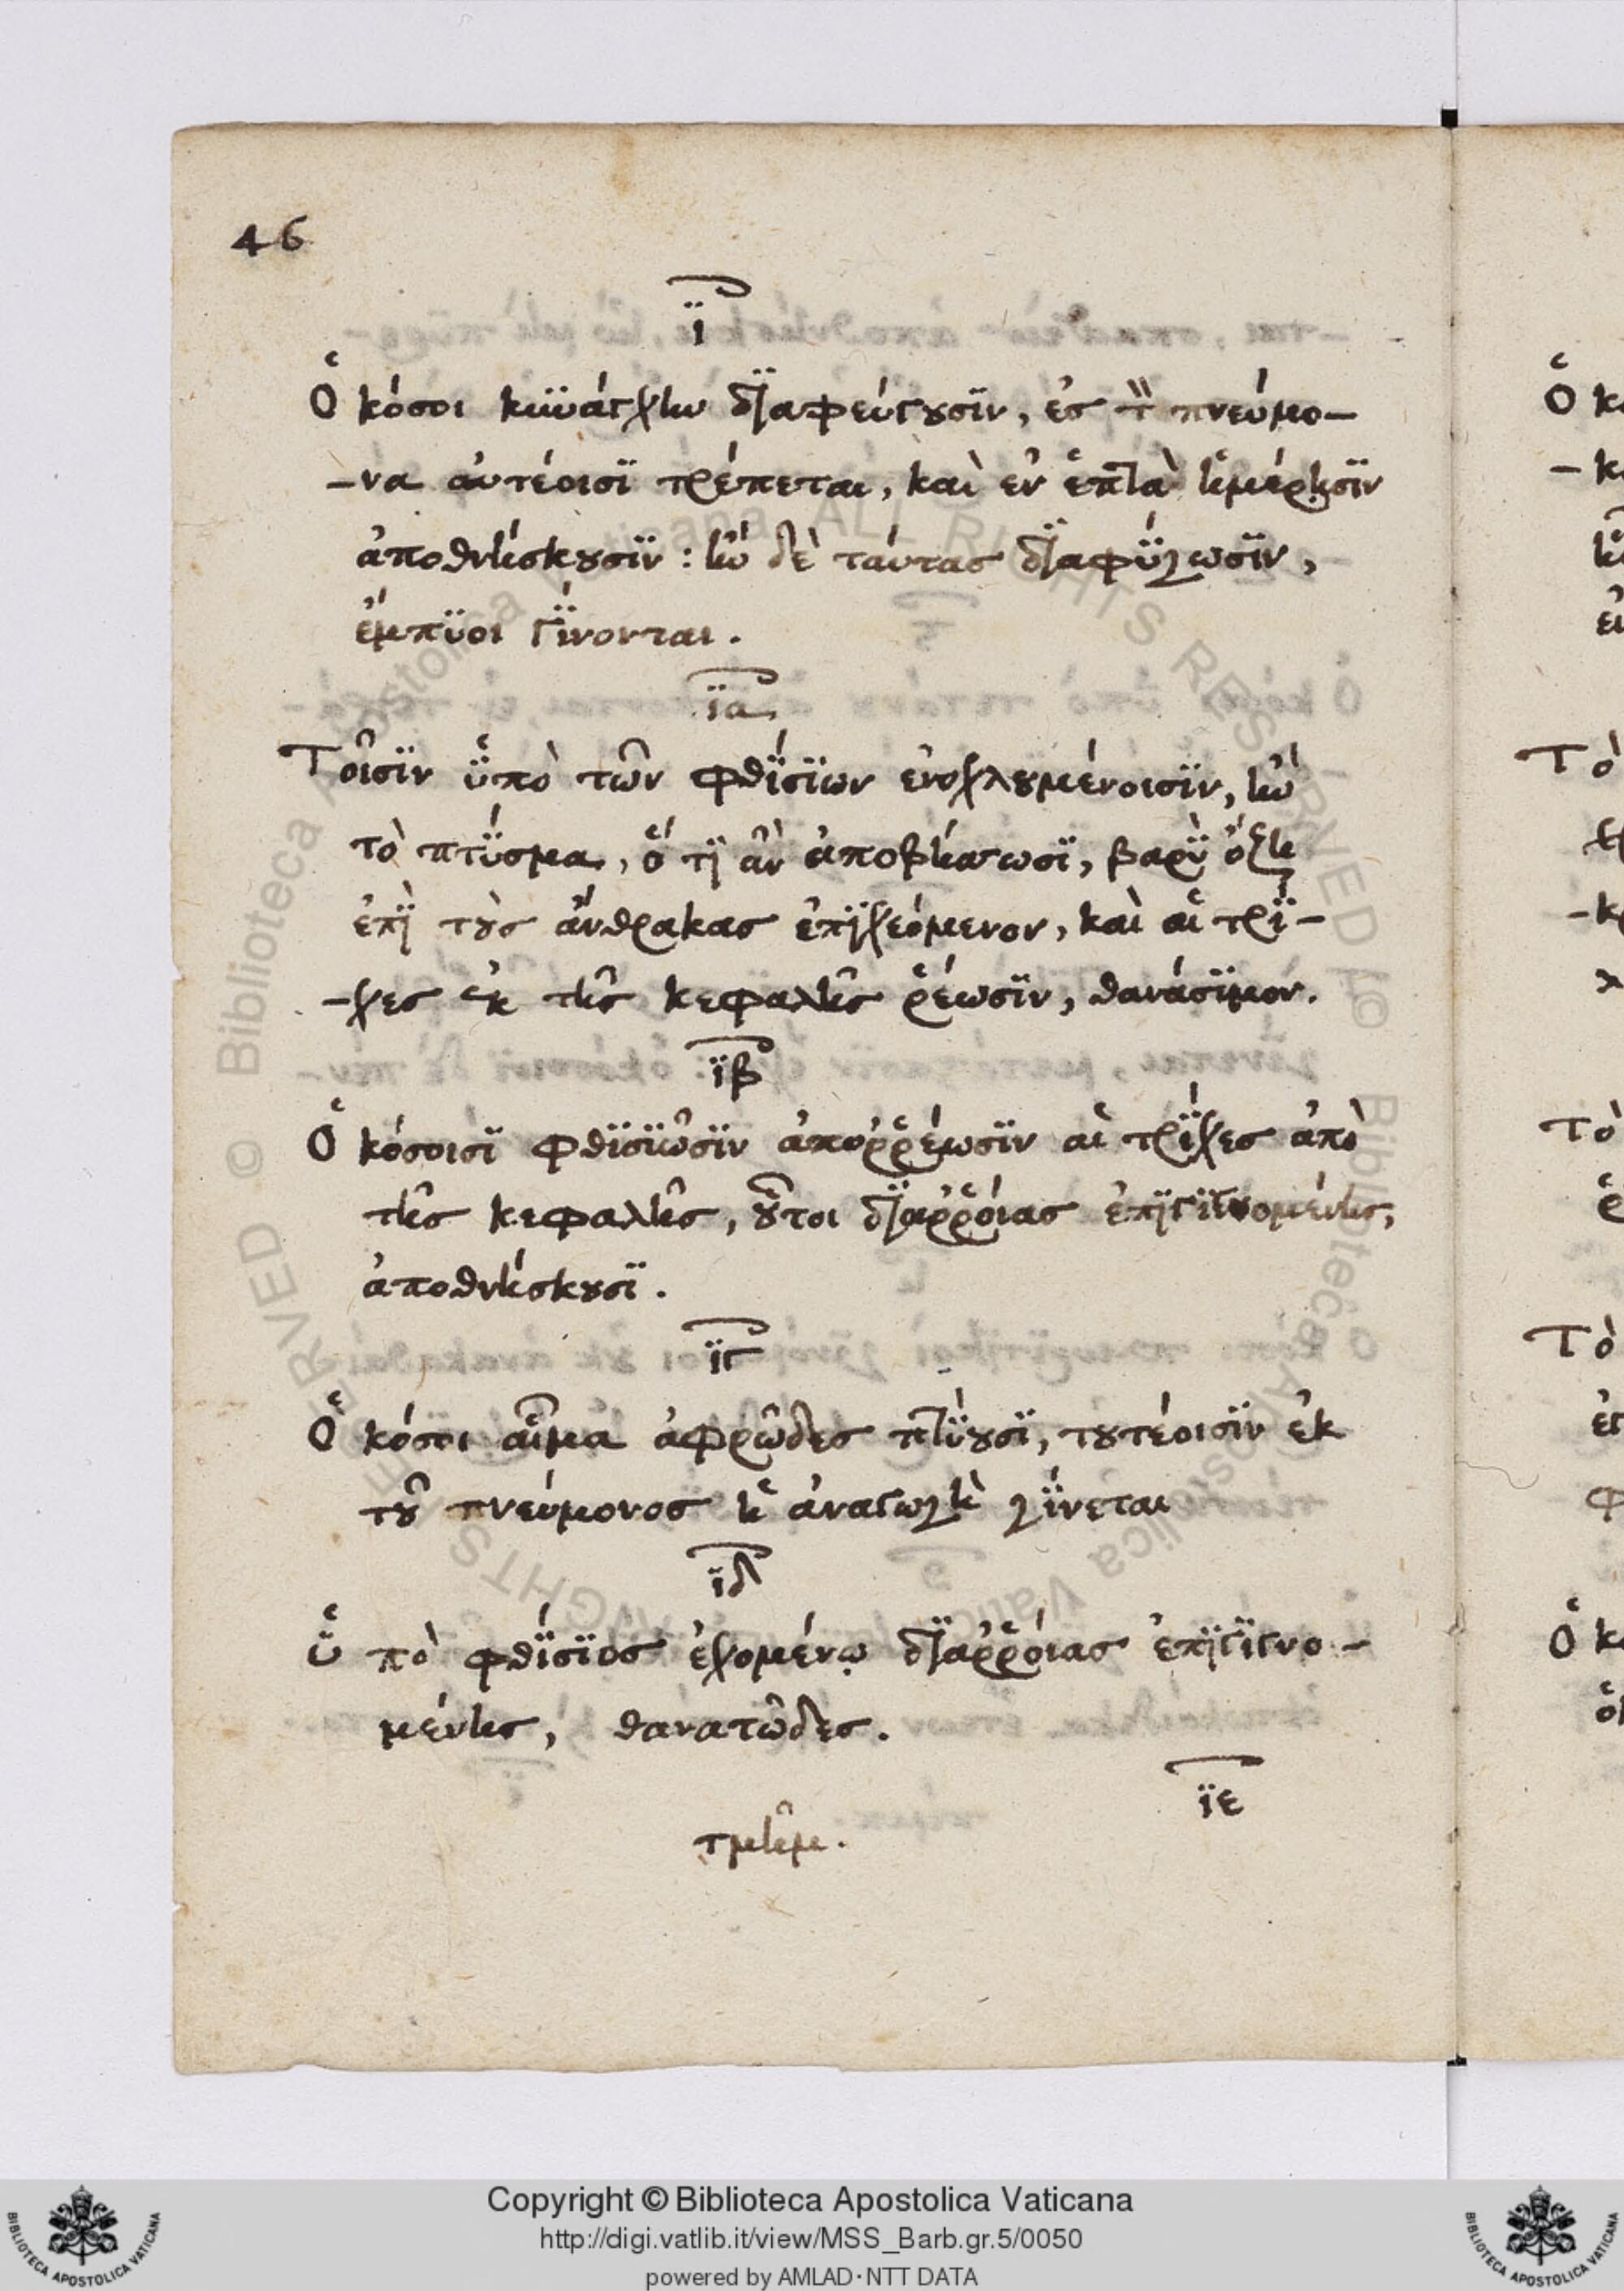 46
ϊ
Ὁκόσοι κϋνάγχην δϊαφεύγουσϊν, ἐς τὸν πνεύμο-
-να αὐτέοισϊ τρέπεται, καὶ ἐν ἑπτὰ ἡμέρῃσϊν
ἀποθνήσκουσϊν: ἢν δὲ ταύτας δϊαφΰγωσϊν,
ἔμπϋοι γΐνονται.
ϊα
Τοῖσϊν ϋ̔πὸ τῶν φθΐσϊων ἐνοχλουμένοισϊν, ἢν
τὸ πτΰσμα, ὅ τϊ ἂν ἀποβήσσωσϊ, βαρῢ ὄζῃ
ἐπῒ τοὺς ἄνθρακας ἐπϊχεόμενον, καὶ αἱ τρΐ-
-χες ἐκ τῆς κεφαλῆς ῥέωσϊν, θανάσϊμον.
ϊβ
Ὁκόσοισϊ φθϊσϊῶσϊν ἀποῤῥέωσϊν αἱ τρΐχες ἀπὸ
τῆς κεφαλῆς, οὗτοι δϊαῤῥοίας ἐπϊγϊνομένης,
ἀποθνήσκουσϊ.
ϊγ
Ὁκόσοι αἷμα ἀφρῶδες πτΰουσϊ, τουτέοισϊν ἐκ
τοῦ πνεύμονος ἡ ἀναγωγὴ γΐνεται
ϊδ
Ϋ̔πὸ φθΐσϊος ἐχομένῳ δϊαῤῥοίας ἐπϊγϊγνο-
μένης, θανατῶδες.
ϊε
τμῆμ.
Copyright © Biblioteca Apostolica Vaticana
http://digi.vatlib.it/view/MSS_Barb.gr.5/0050
powered by AMLAD·NTT DATA